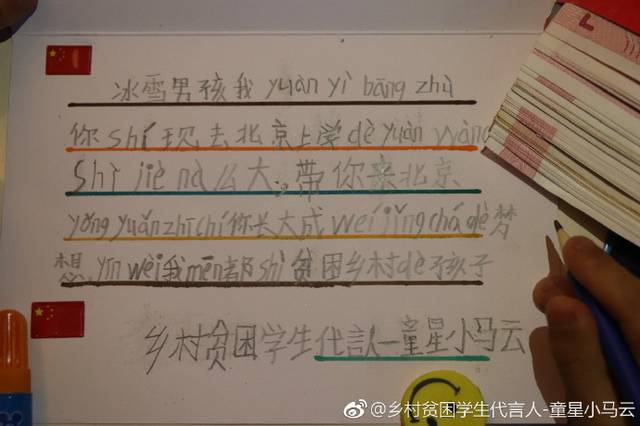 冰雪男孩我 yuàn yì bāng zhù
你 shí 现去北京上学 dè yuàn wàng
Shì jiè nà 么大。带你来北京
yǒng yuǎn zhī chí 你长大成 wéi jǐng chá dè 梦
想. yīn wèi 我 mēn 都 shì 贫困乡村 dè 孩子
乡村贫困学生代言人一童星小马云
@乡村贫困学生代言人-童星小马云